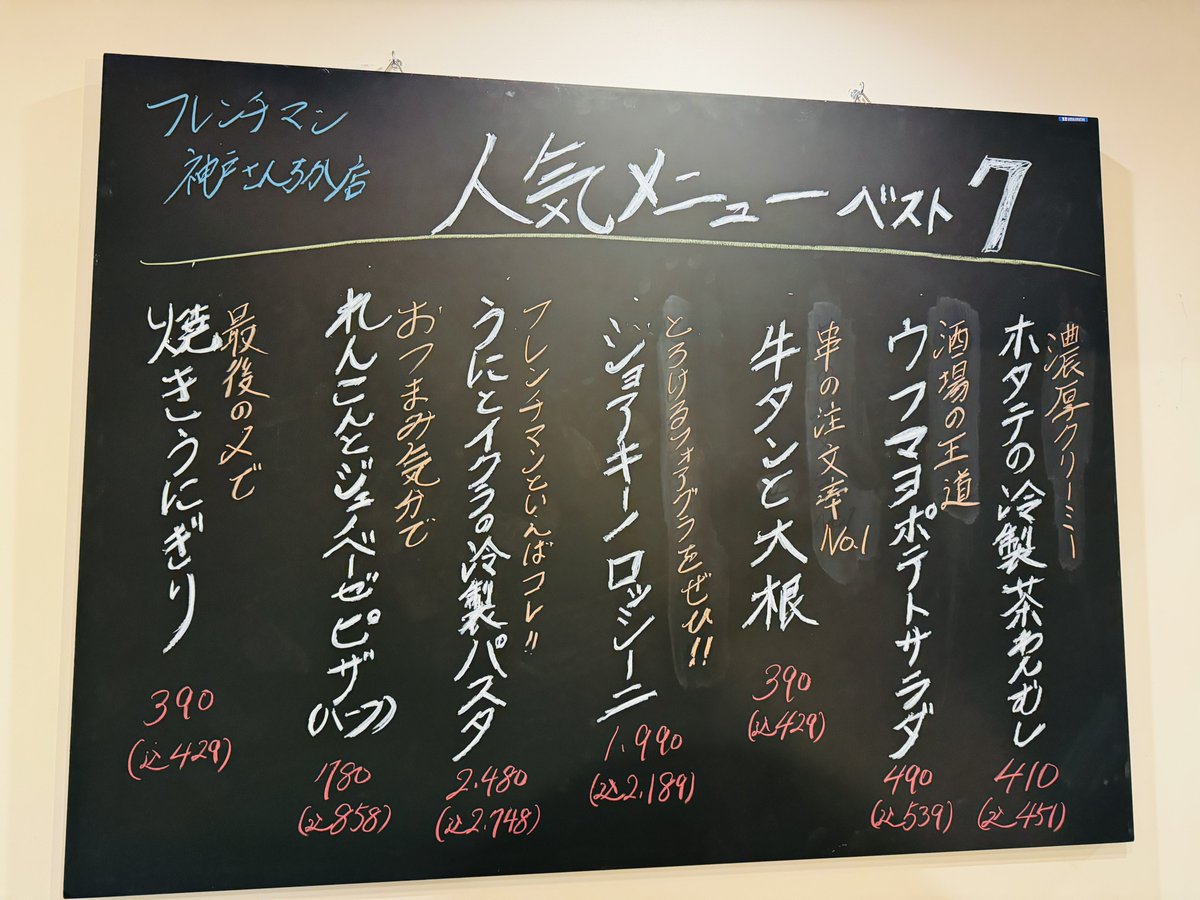 フレンチマン
神戸さんろか店
人気メニューベスト7
濃厚クリーミー
ホタテの冷製茶わんむし
410
(込451)
酒場の王道
ウフマヨポテトサラダ
490
(込539)
串の注文率No.1
牛タンと大根
390
(込429)
とろけるフォアグラをぜひ!!
ジョアキーノロッシーニ
1.990
(込2.189)
フレンチマンといえばコレ!!
うにとイクラの冷製パスタ
2.480
(込2.748)
おつまみ気分で
れんこんとジェノベーゼピザ(ハーフ)
780
(込858)
最後の〆で
焼きうにぎり
390
(込429)